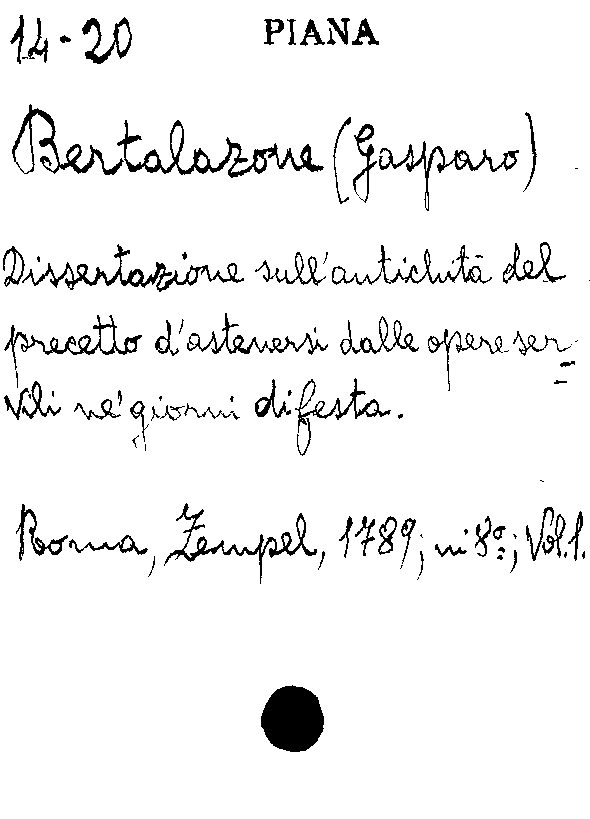 14-20 PIANA
Bertalazone (Gasparo)
Dissertazione sull'antichità del
precetto d'astenersi dalle opere ser=
vili ne' giorni di festa.
Roma, Zempel, 1789; in 8º; Vol. 1.